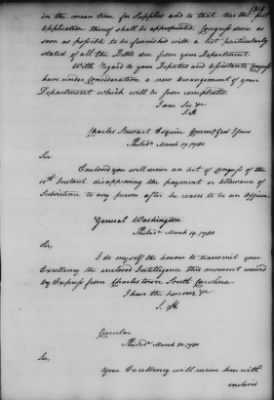 in the mean time for Supplies and to that Use the first
application thing shall be appropriated. Congress desire as
soon as possible to be furnished with a list particularly
stated of all the Debts due from your Department.
With Regard to your Deputies and Assistants Congress
have under Consideration a new arrangement of your
Department which will be soon compleated.
I am Sir &c
S.H
Charles Stewart Esquire Commy Genl Issues
Philada March 17. 1780
Sir
Enclosed you will receive an act of Congress of the
10th Instant disapproving the payment or allowance of
Subsistence to any person after he ceases to be an Officer.
General Washington
Philada March 19. 1780
Sir,
I do myself the honor to transmit your
Excellency the enclosed Intelligence this moment received
by Express from Charlestown South Carolina.
I have the honour &c
S. H
Circular
Philada March 20. 1780
Sir,
Your Excellency will receive herewith
enclosed